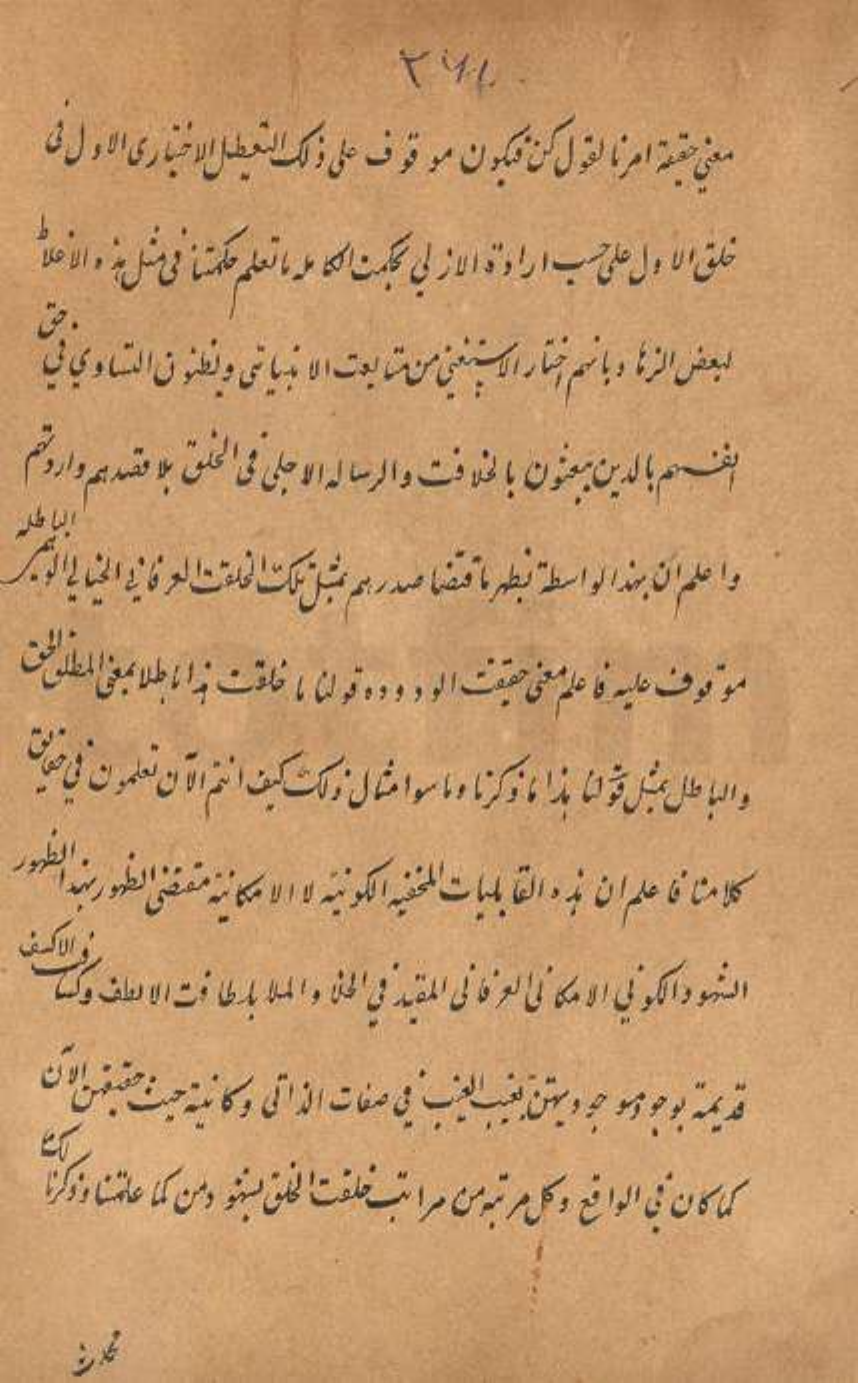 معني حقيقة امرنا لقول كن فيكون موقوف على ذلك التعطيل الاختيارى الاول فى
خلق الاول على حسب ارادة الازلي بحكمت الكامله ما تعلم حكمتنا فى مثل هذه الأغلاط
لبعض الزنا وبانهم اختار الاستغنى من متابعت الانبياتى ويظنون التساوي في حق
انفسهم بالدين يبعثون بالخلافت والرساله الاجلى فى الخلق بلا قصدهم وارادتهم
واعلم ان بهذا الواسطة تظهر ما قتضا صدرهم بمثل تلك الخلقت العرفاني الخيالي الباطله
موقوف عليه فاعلم معنى حقيقت الودوده قولنا ما خلقت هذا باطلا بمعنى المطلق الحق
والباطل بمثل قولنا هذا ما ذكرنا وما سوا مثال ذلك كيف انتم الآن تعلمون في حقايق
كلامنا فاعلم ان هذه القابليات المخفيه الكونيّه لا الامكانيّة مقتضى الظهور بهذا الظهور
الشهود الكوني الامكانى العرفانى المقيد في الخلا والملا بلطافت الالطف وكثافت الاكثف
قديمة بوجود موجوديتهن بغيب الغيب في صفات الذاتى وكانية حيث حقيقهن الآن
كما كان في الواقع وكل مرتبه من مراتب خلقت الخلق بشهودمن كما علمتنا وذكرنا لك